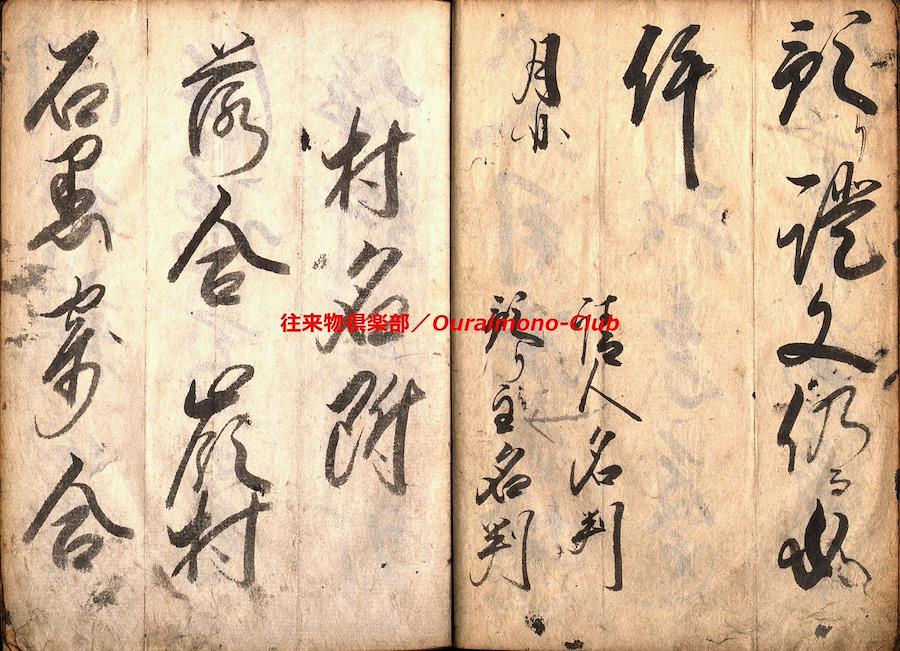 預り證文仍而如
件
月日
請人名判
預り主名判
村名附
落合 嶺村
石墨 寄合
往来物倶楽部／Ouraimono-Club